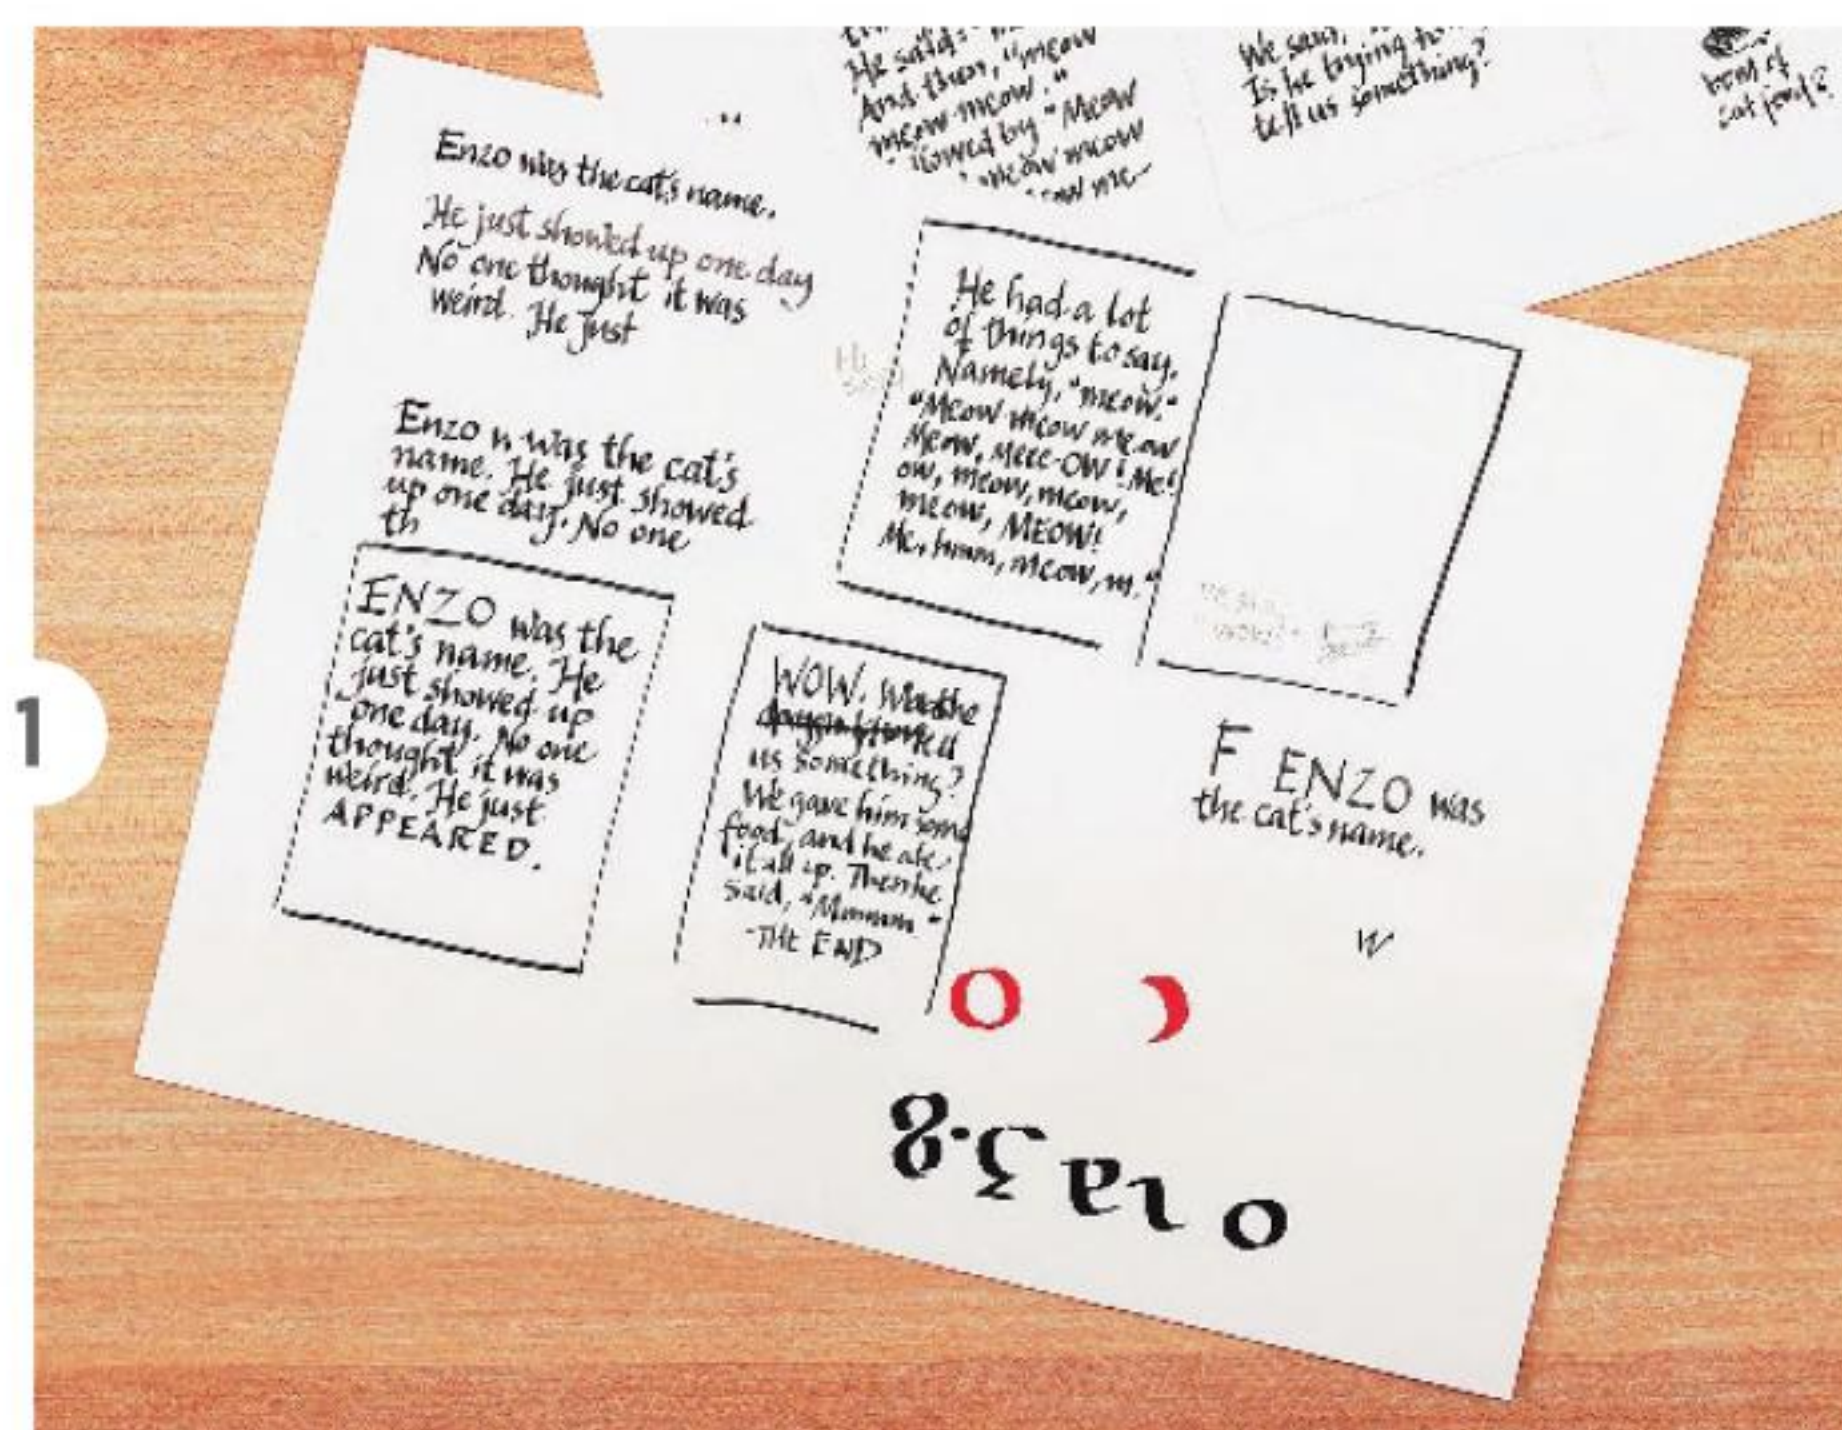 He said:
And then, "meow
meow-meow."
lowed by "Meow
meow meow
We said,
Is he trying to
tell us something?
bowl of
cat food?
Enzo was the cat's name.
He just showed up one day
No one thought it was
weird. He just
Enzo w was the cat's
name. He just showed
up one day. No one
th
ENZO was the
cat's name. He
just showed up
one day. No one
thought it was
weird. He just
APPEARED.
He had a lot
of things to say.
Namely, "meow."
"Meow meow meow
Meow, Meee-OW! Me!
ow, meow, meow,
meow, MEOW!
Me, hmm, meow, m."
WOW. Was he
us something?
We gave him some
food, and he ate
it all up. Then he
said, "Mmmmm"
-THE END
F ENZO was
the cat's name.
W
O
8.3
O
1